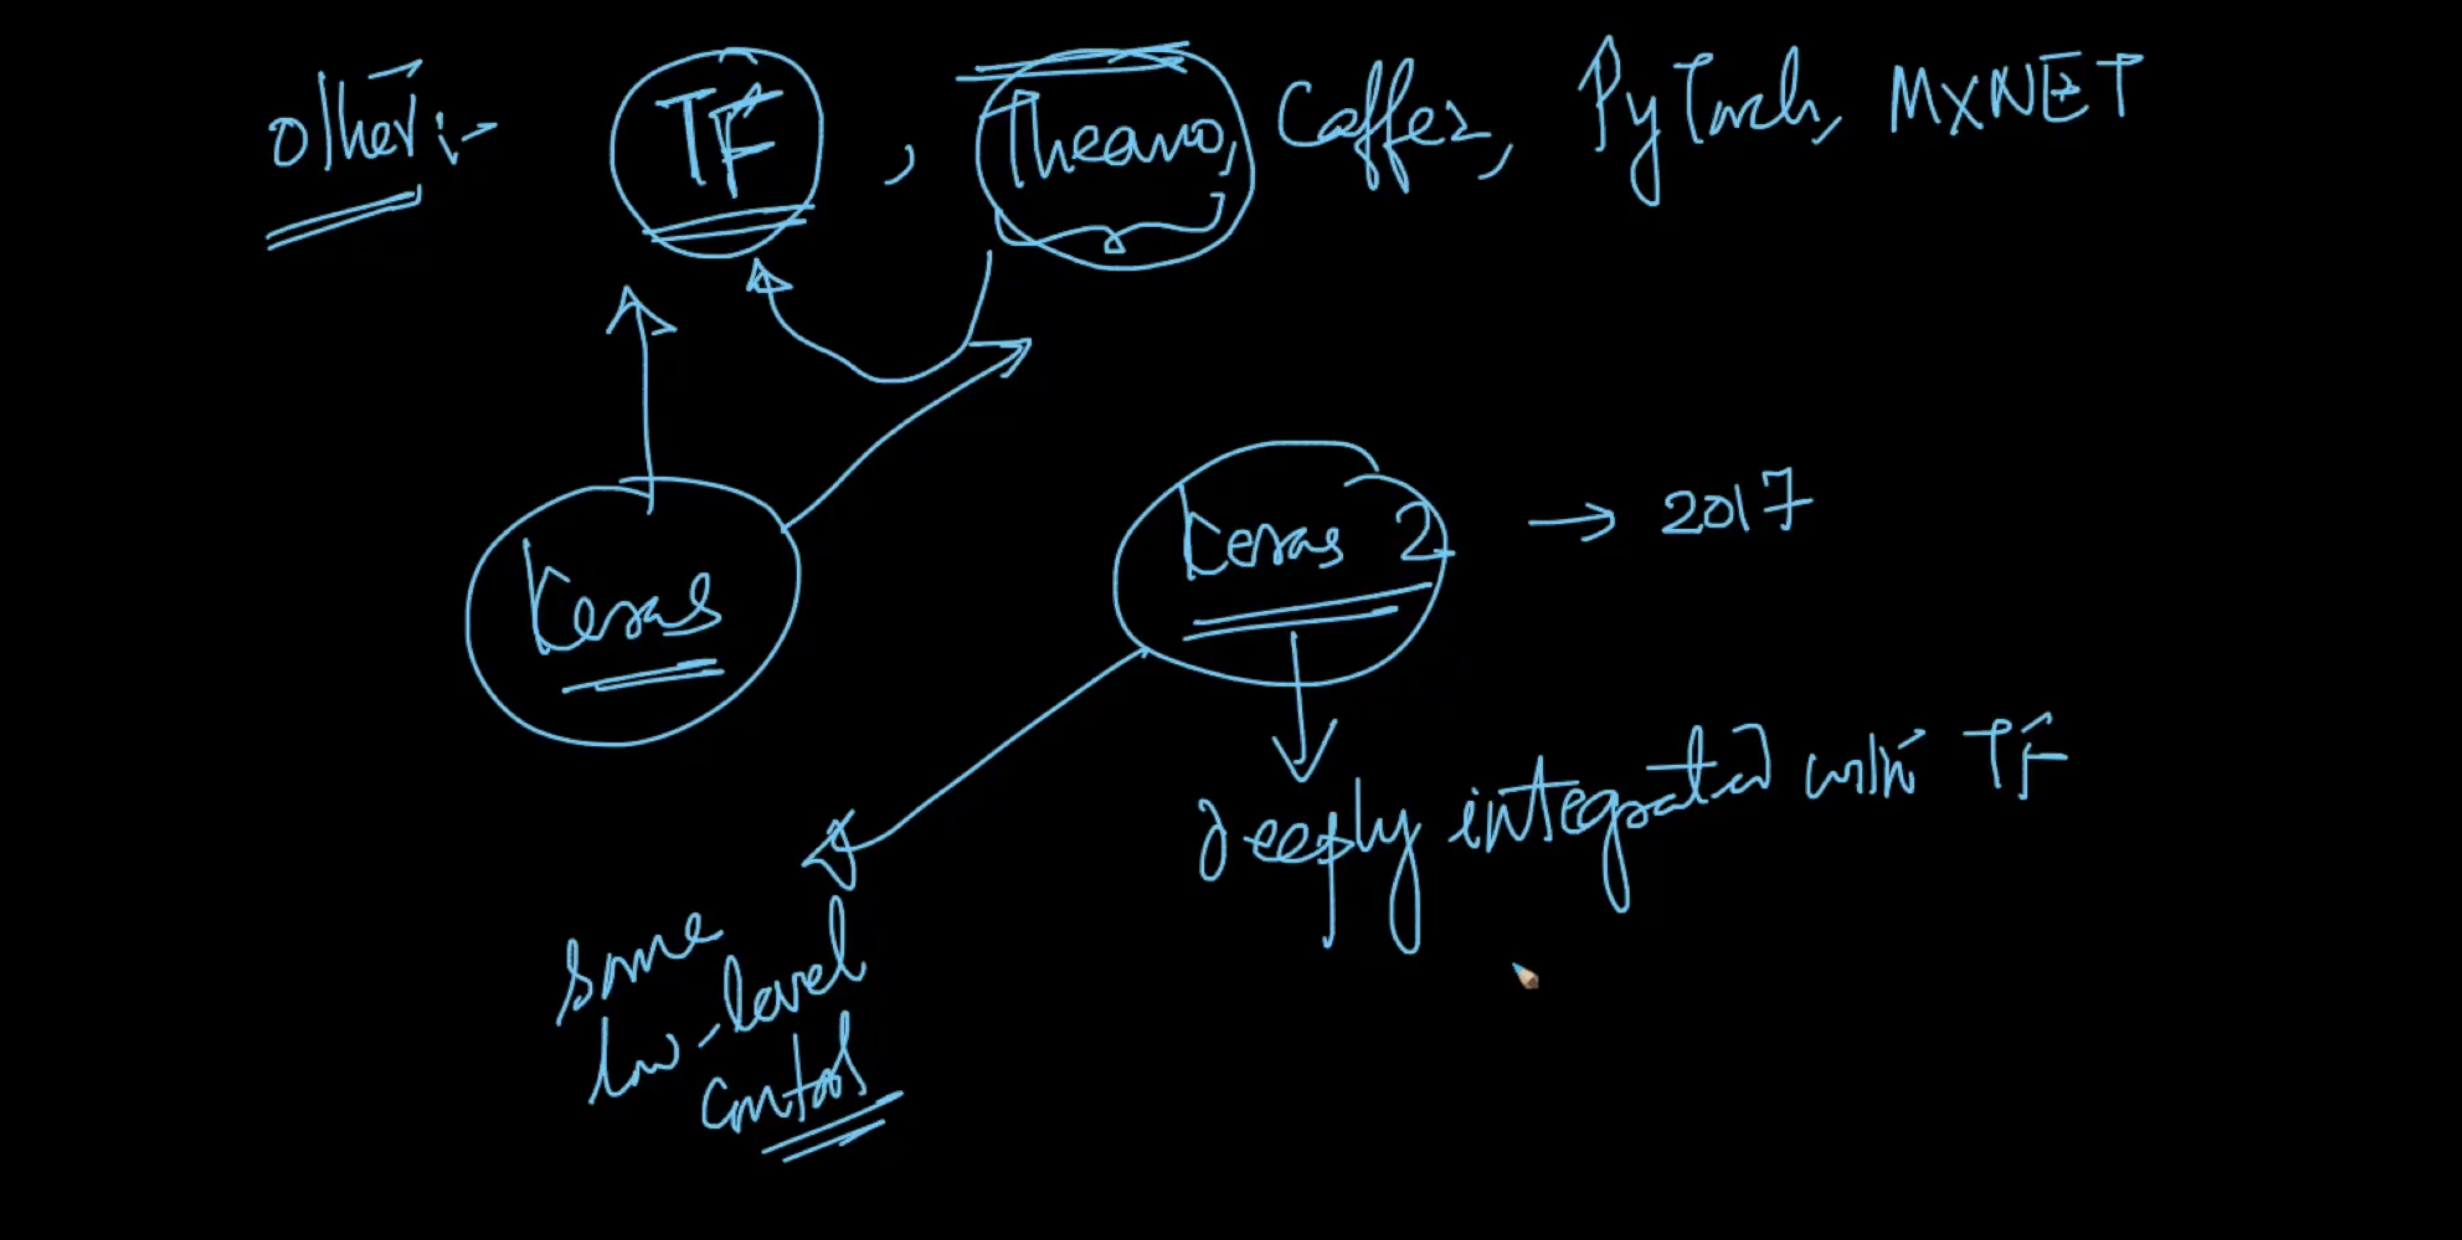 other :- TF, Theano, Caffe2, PyTorch, MXNET
Keras
Keras 2 → 2017
deeply integrated with TF
some
low-level
controls